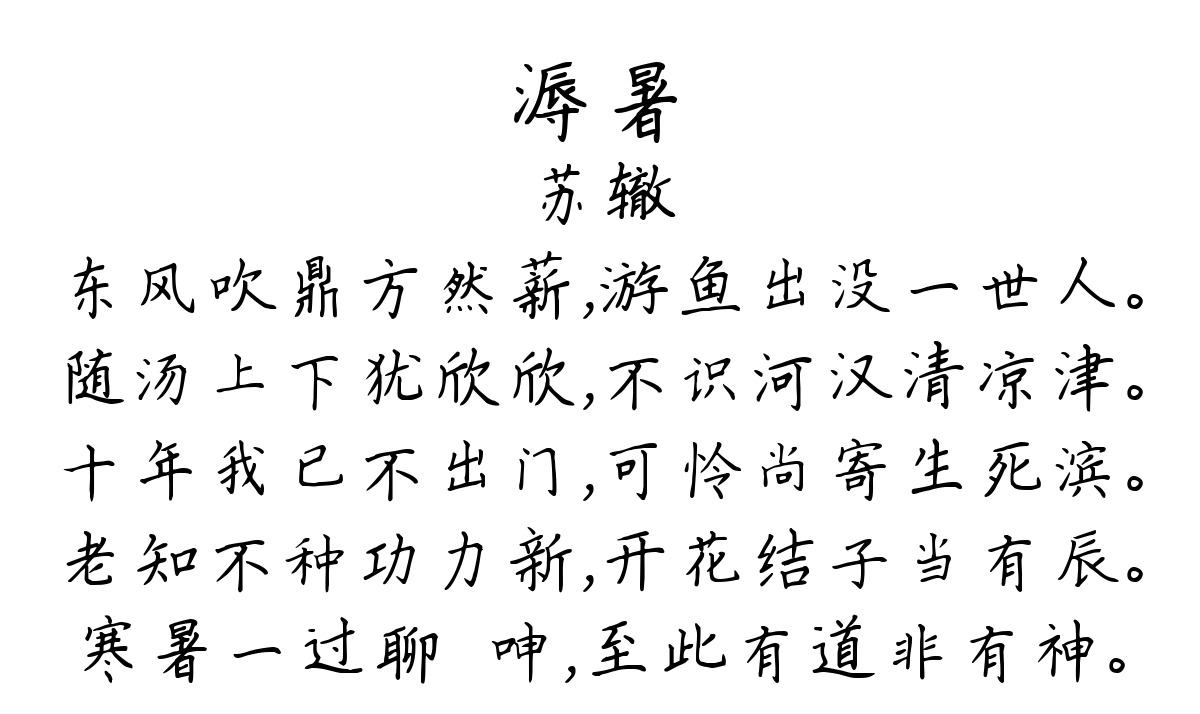 溽暑
苏辙
东风吹鼎方然薪,游鱼出没一世人。
随汤上下犹欣欣,不识河汉清凉津。
十年我已不出门,可怜尚寄生死滨。
老知不种功力新,开花结子当有辰。
寒暑一过聊 呻,至此有道非有神。